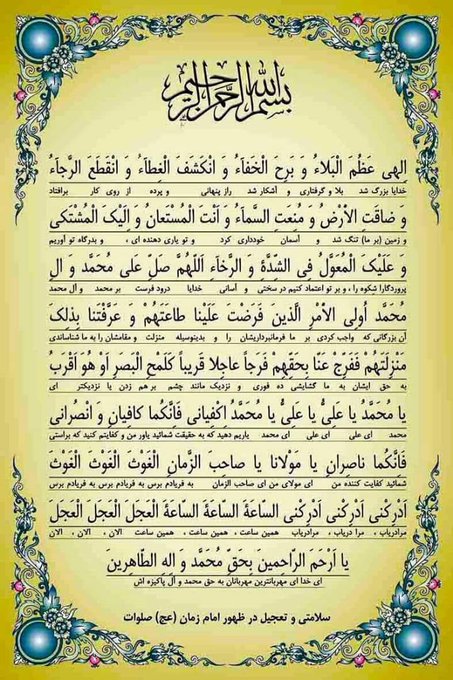 بسم الله الرحمن الرحیم
اِلهی عَظُمَ الْبَلاءُ وَ بَرِحَ الْخَفاءُ وَ انْکَشَفَ الْغِطاءُ وَ انْقَطَعَ الرَّجاءُ
خدایا بزرگ شد بلا و گرفتاری و آشکار شد راز پنهانی و پرده از روی کار برافتاد
وَ ضاقَتِ الْاَرْضُ وَ مُنِعَتِ السَّماءُ وَ اَنْتَ الْمُسْتَعانُ وَ اِلَیْکَ الْمُشْتَکی
و زمین (بر ما) تنگ شد و آسمان خودداری کرد و تو یاری دهنده ای ، و بدرگاه تو آوریم
وَ عَلَیْکَ الْمُعَوَّلُ فِی الشِّدَّةِ وَ الرَّخاءِ اَللّهُمَّ صَلِّ عَلی مُحَمَّد وَ الِ
پروردگارا شکوه را ، و بر تو اعتماد کنیم در سختی و آسانی خدایا درود فرست بر محمد و آل محمد
مُحَمَّد اُولِی الْاَمْرِ الَّذینَ فَرَضْتَ عَلَیْنا طاعَتَهُمْ وَ عَرَّفْتَنا بِذلِکَ
آن بزرگانی که واجب کردی بر ما فرمانبرداریشان را و بدینوسیله منزلت و مقامشان را به ما شناساندی
مَنْزِلَتَهُمْ فَفَرِّجْ عَنّا بِحَقِّهِمْ فَرَجاً عاجِلا قَریباً کَلَمْحِ الْبَصَرِ اَوْ هُوَ اَقْرَبُ
به حق ایشان به ما گشایشی ده فوری و نزدیک مانند چشم بر هم زدن یا نزدیکتر ای
یا مُحَمَّدُ یا عَلِیُّ یا عَلِیُّ یا مُحَمَّدُ اِکْفِیانی فَاِنَّکُما کافِیانِ وَ انْصُرانی
محمد ای علی ای علی ای محمد یاریم دهید که به حقیقت شمائید یاور من و کفایتم کنید که براستی
فَاِنَّکُما ناصِرانِ یا مَوْلانا یا صاحِبَ الزَّمانِ الْغَوْثَ الْغَوْثَ الْغَوْثَ
شمائید کفایت کننده من ای مولای من ای صاحب الزمان به فریادم برس به فریادم برس به فریادم برس
اَدْرِکْنی اَدْرِکْنی اَدْرِکْنی السّاعَةَ السّاعَةَ السّاعَةَ الْعَجَلَ الْعَجَلَ الْعَجَلَ
مرادریاب ، مرا دریاب ، مرادریاب همین ساعت ، همین ساعت ، همین ساعت الان ، الان ، الان
یا اَرْحَمَ الرّاحِمینَ بِحَقِّ مُحَمَّد وَ الِه الطّاهِرینَ
ای خدا ای مهربانترین مهربانان به حق محمد و آل پاکیزه اش
سلامتی و تعجیل در ظهور امام زمان (عج) صلوات